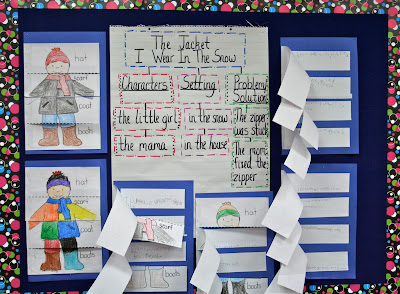 The Jacket
I Wear In The Snow
Characters
the little girl
the mama
Setting
in the snow
in the house
Problem/
Solution
The zipper
was stuck
The mom
fixed the
zipper
hat
scarf
coat
boots
hat
scarf
coat
boots
scarf
boots
hat